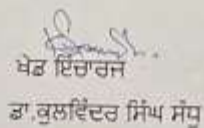 ਖੇਡ ਇੰਚਾਰਜ
ਡਾ.ਕੁਲਵਿੰਦਰ ਸਿੰਘ ਸੰਧੂ